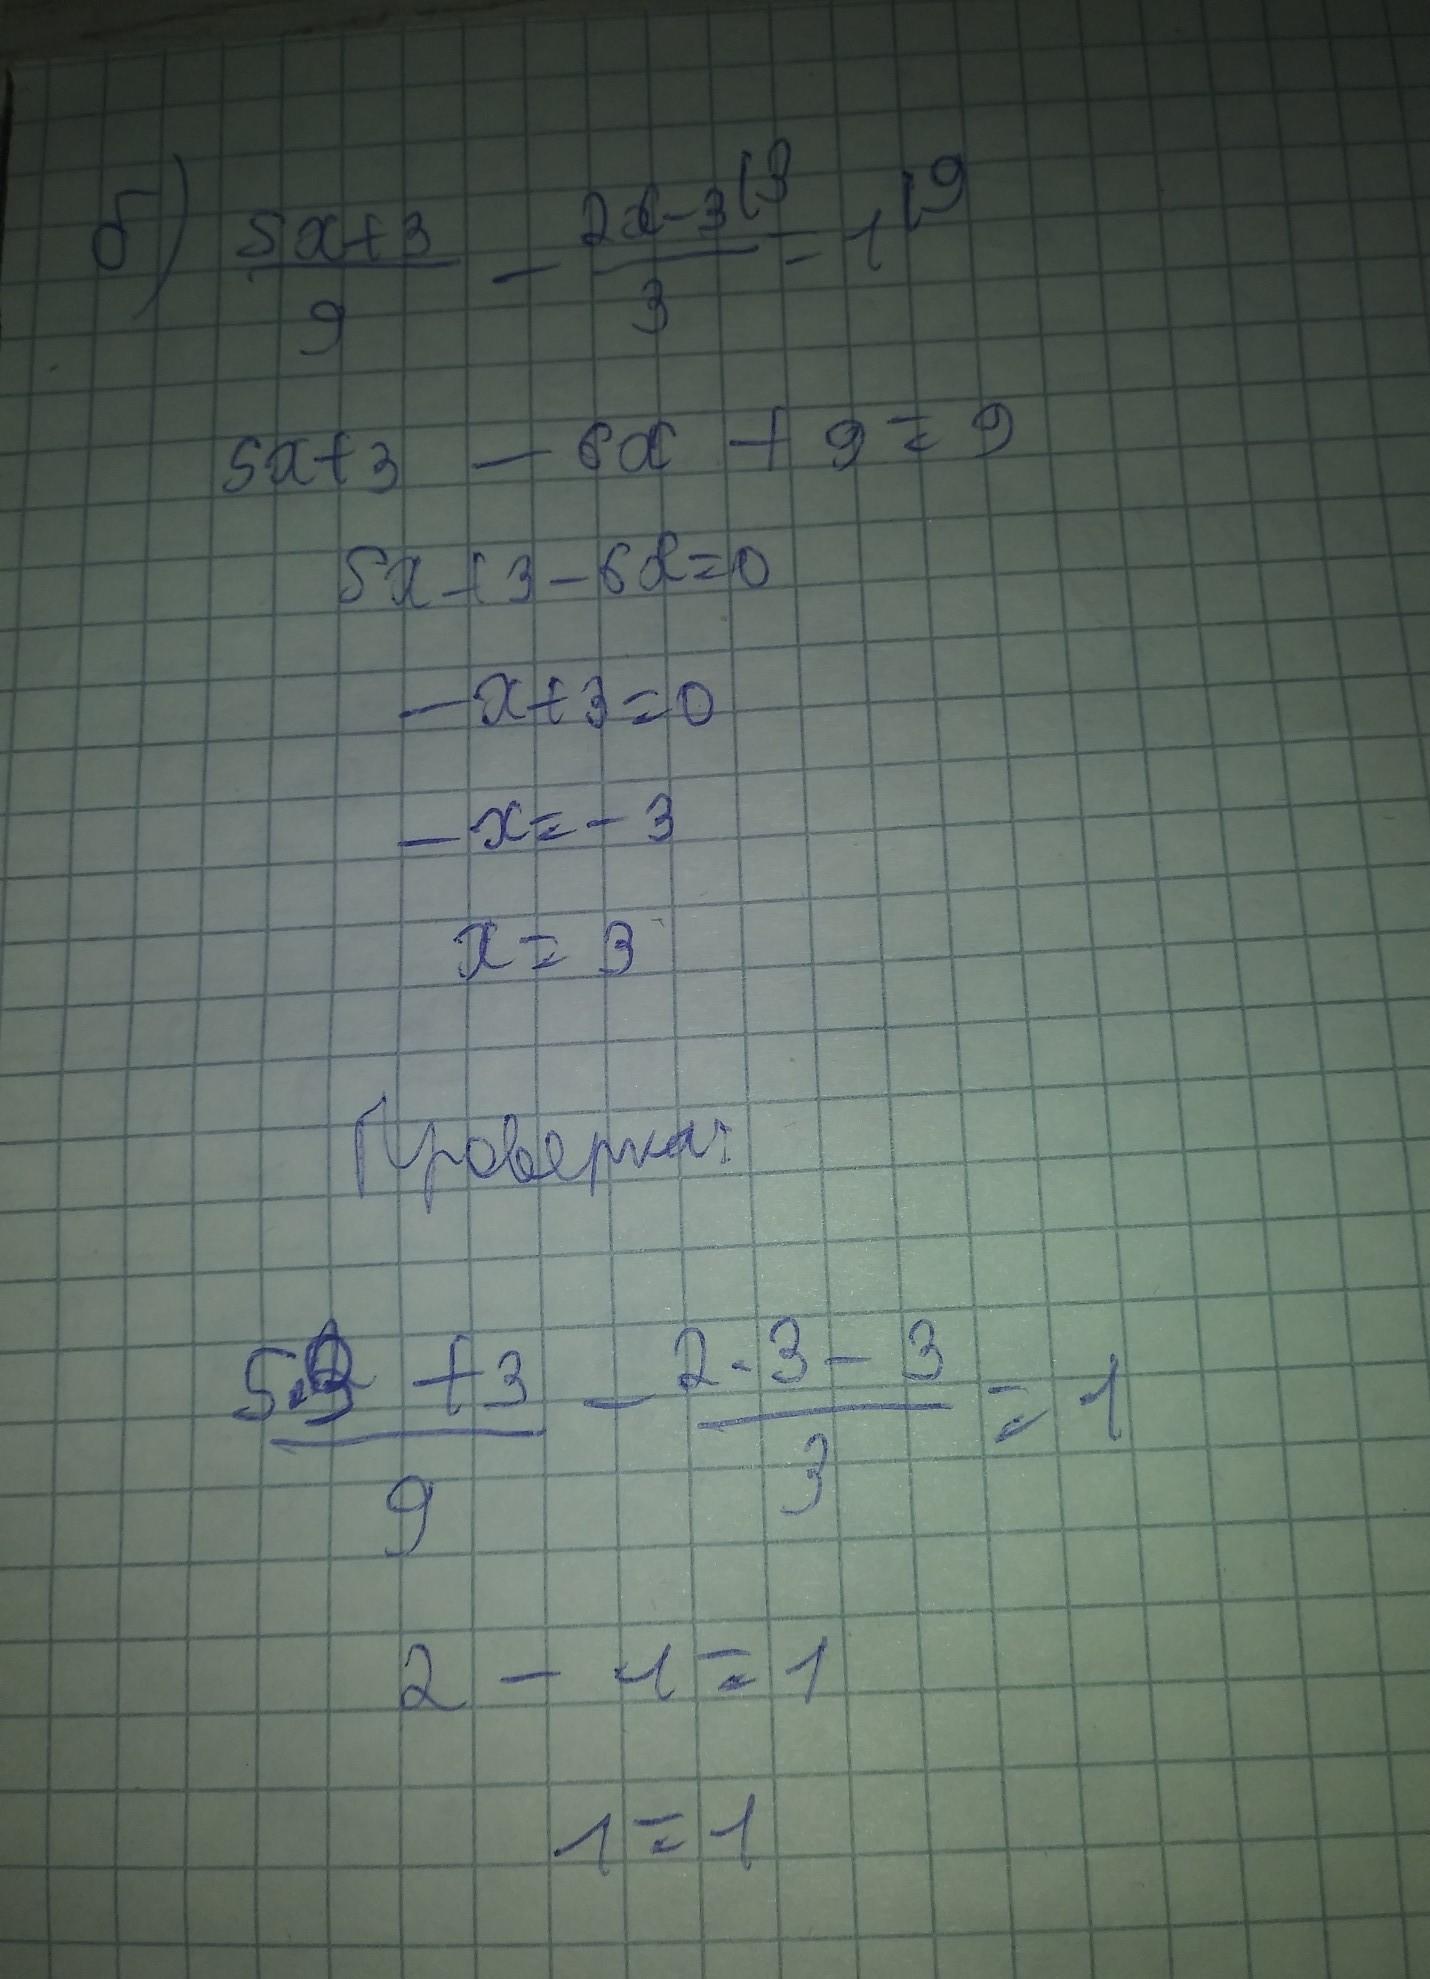 б) (5x+3)/9 - (2x-3)/3 |3 = 1 |9
5x+3 - 6x + 9 = 9
5x+3-6x=0
-x+3=0
-x=-3
x=3
Проверка:
(5·3+3)/9 - (2·3-3)/3 = 1
2 - 1 = 1
1=1